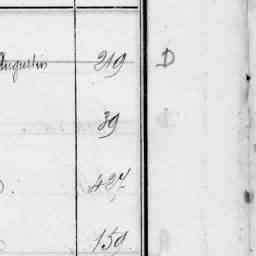 Augustin 319 D
39
437
159